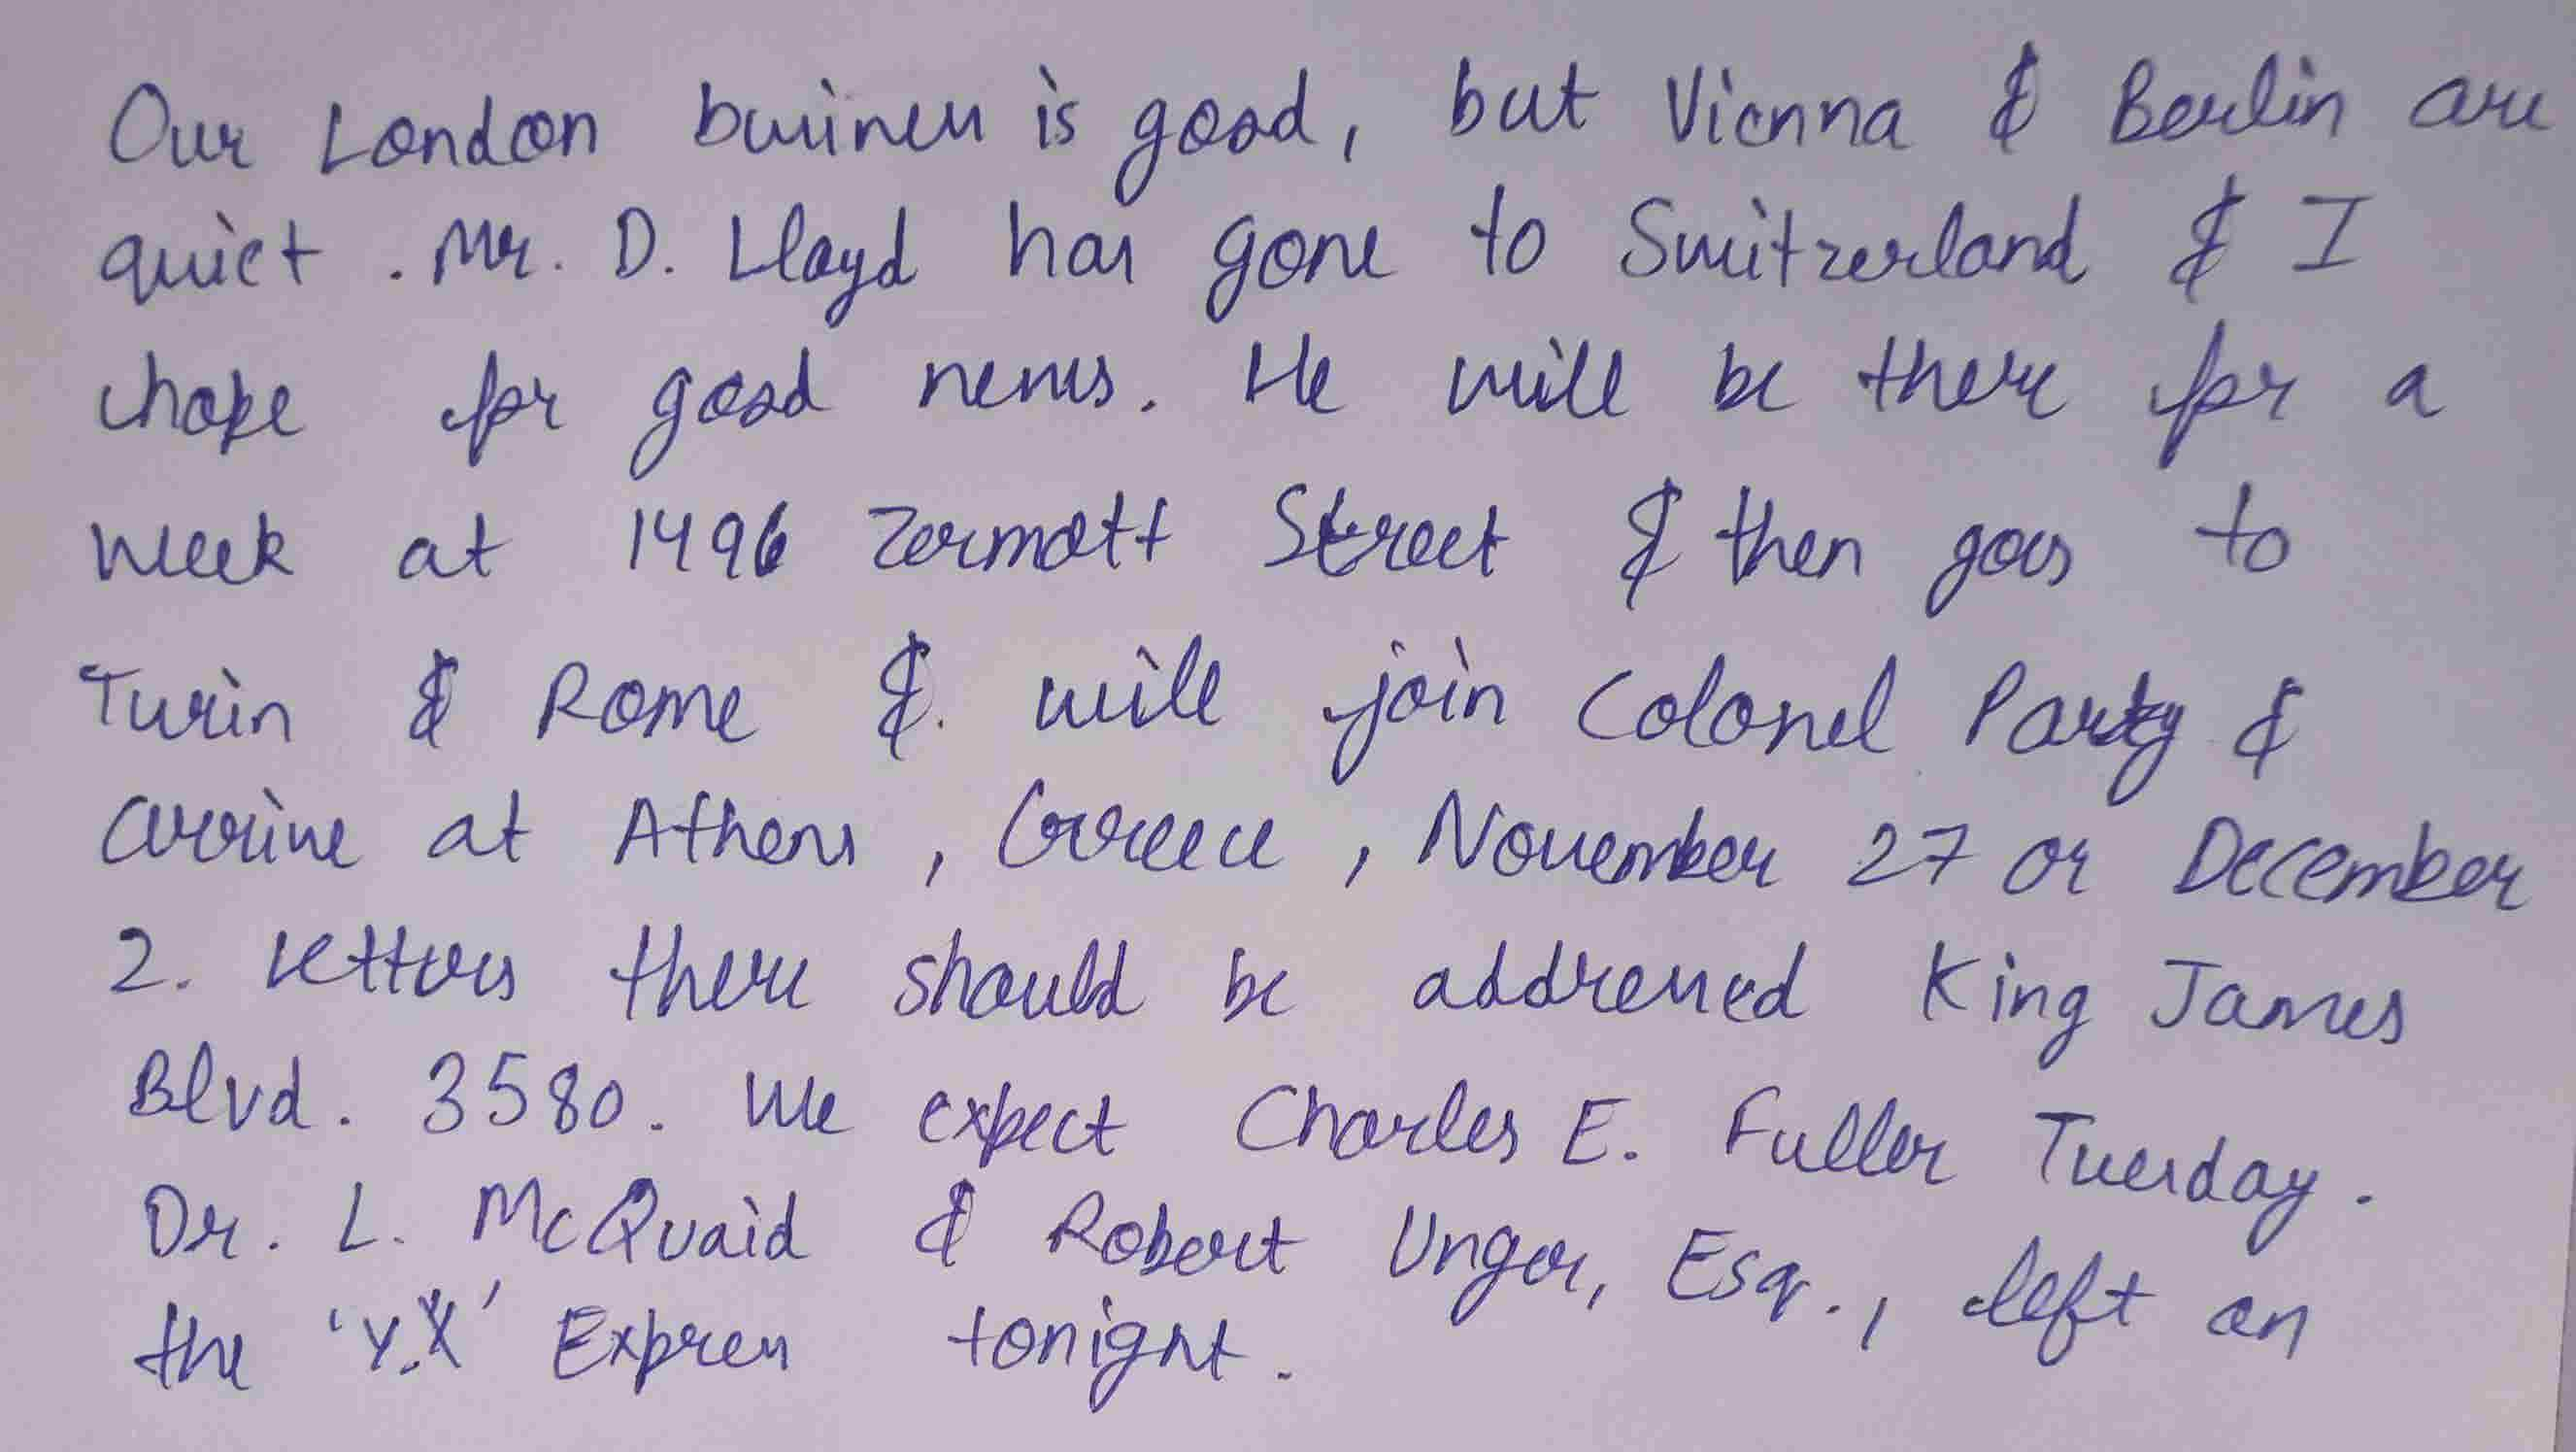 Our London business is good, but Vienna & Berlin are
quiet. Mr. D. Lloyd has gone to Switzerland & I
hope for good news. He will be there for a
week at 1496 Zermott Street & then goes to
Turin & Rome & will join Colonel Party &
arrive at Athens, Greece, November 27 or December
2. Letters there should be addressed King James
Blvd. 3580. We expect Charles E. Fuller Tuesday.
Dr. L. McQuaid & Robert Unger, Esq., left on
the 'Y.X' Express tonight.